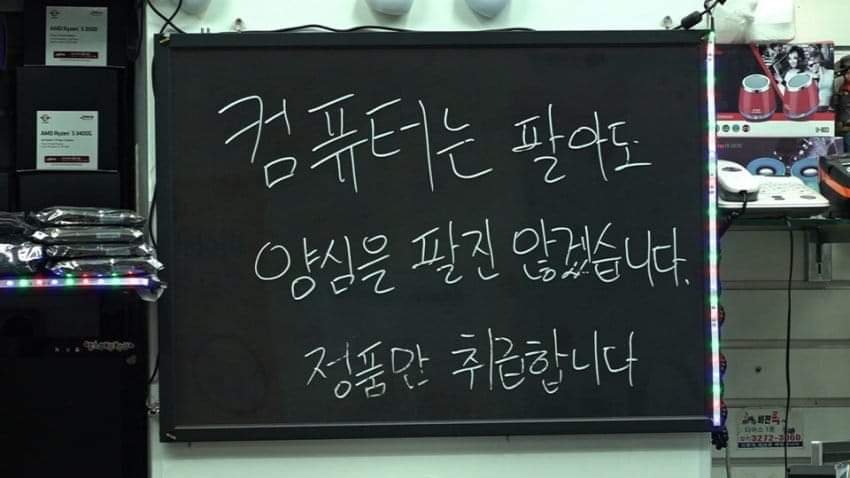 컴퓨터는 팔아도
양심을 팔진 않겠습니다.
정품만 취급합니다
AMD Ryzen 5 3400G
3272-3060